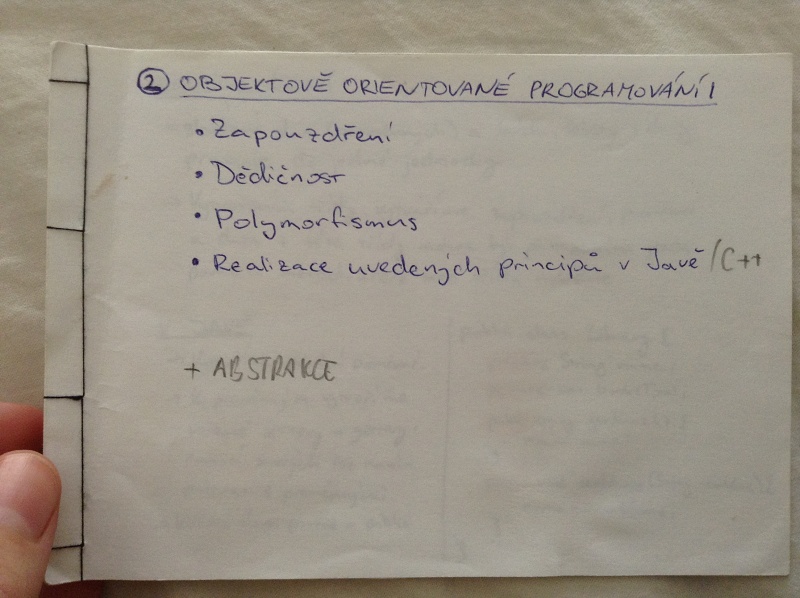 ② OBJEKTOVĚ ORIENTOVANÉ PROGRAMOVÁNÍ I
• Zapouzdření
• Dědičnost
• Polymorfismus
• Realizace uvedených principů v Javě/C++
+ ABSTRAKCE